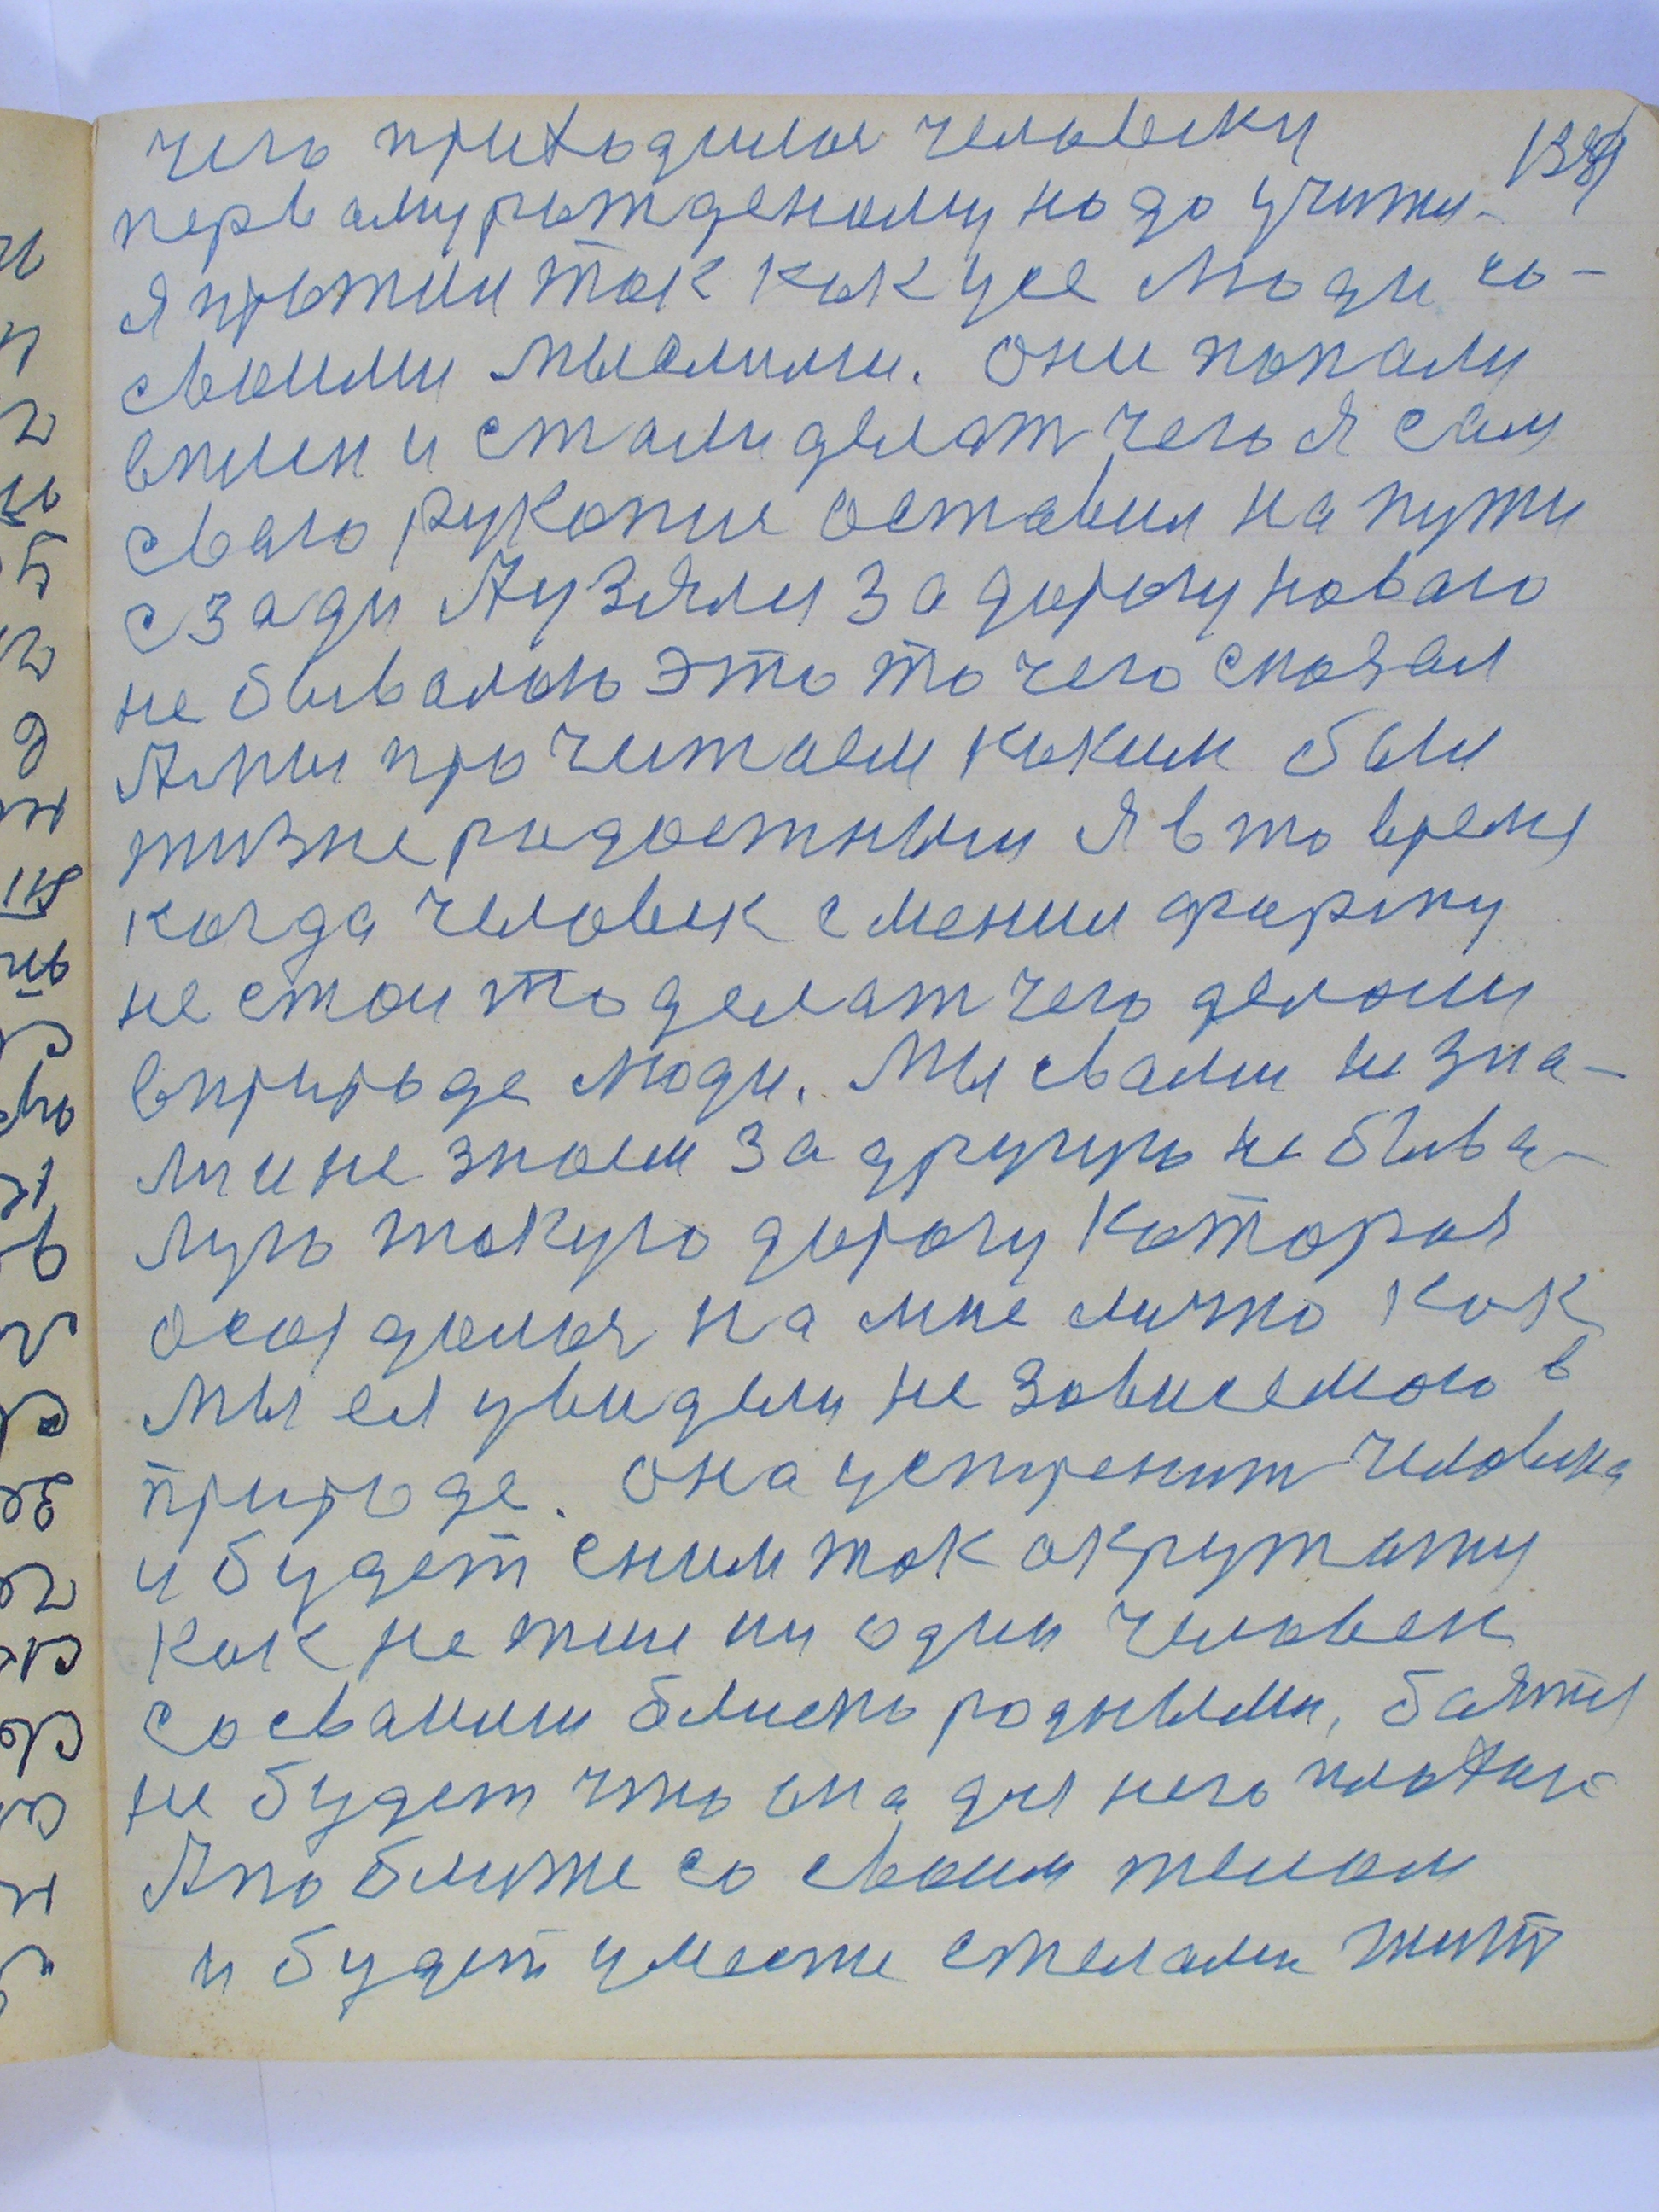 139
чего приходилос человеку
перваму рожденому надо учити-
я прожил так как усе люди со-
своими мыслями. они попали
вплен и стали делат чего я сам
сваго рукопис оставил на пути
сзади А узяли за дорогу новаго
не бывалою это то чего сказал
А мы прочитаем каким был
жизне радостным я в то время
когда человек сменил форму
не стои то делат чего делали
вприроде люди. Мы свами не зна-
ли и не знаем за другую не быва-
лую такую дорогу каторая
осталась на мне лично как
мы ея увидели не зависемою в
природе. она устренит человека
и будет сним так окружату
как не жил ни один человек
со сваими близко родными, баятся
не будет что она для него плохая
А поближе со своим телом
и будет уместе стелами жит